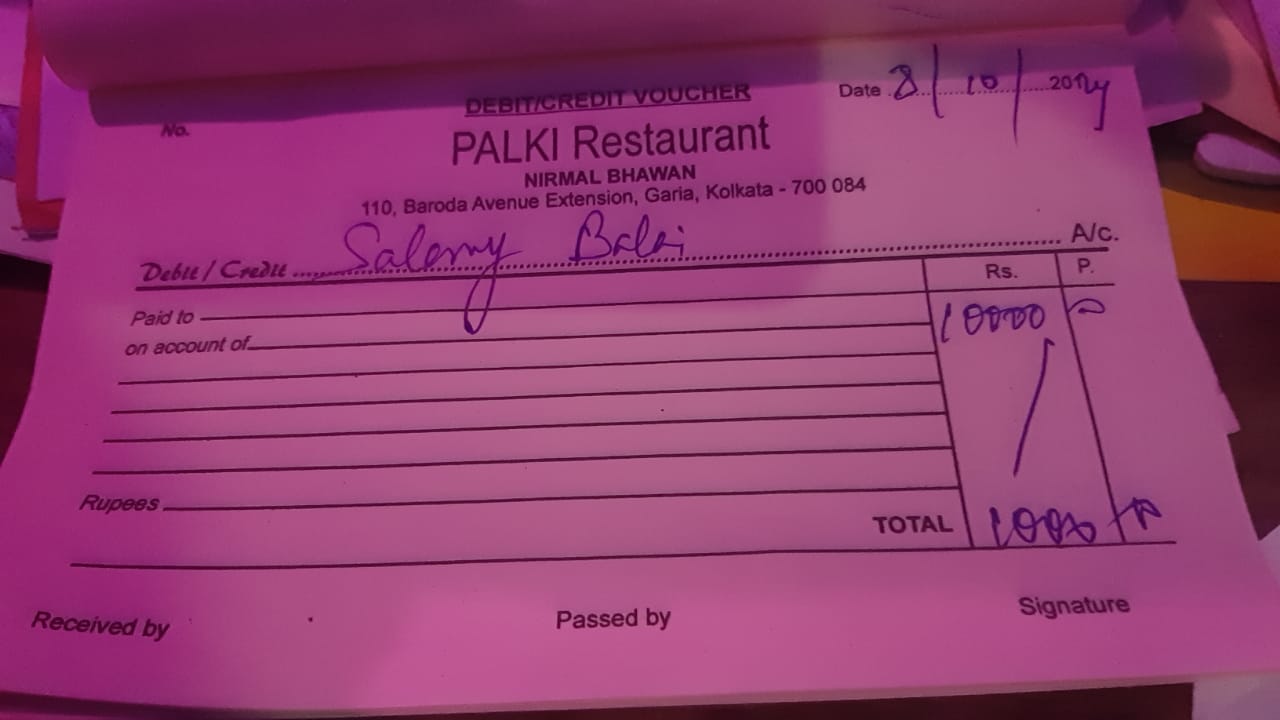 DEBIT/CREDIT VOUCHER
No.
Date 8/10/2024
PALKI Restaurant
NIRMAL BHAWAN
110, Baroda Avenue Extension, Garia, Kolkata - 700 084
Debit / Credit Salemy Balai A/c.
Rs. P.
Paid to 10000
on account of
Rupees
TOTAL 10000
Received by Passed by Signature